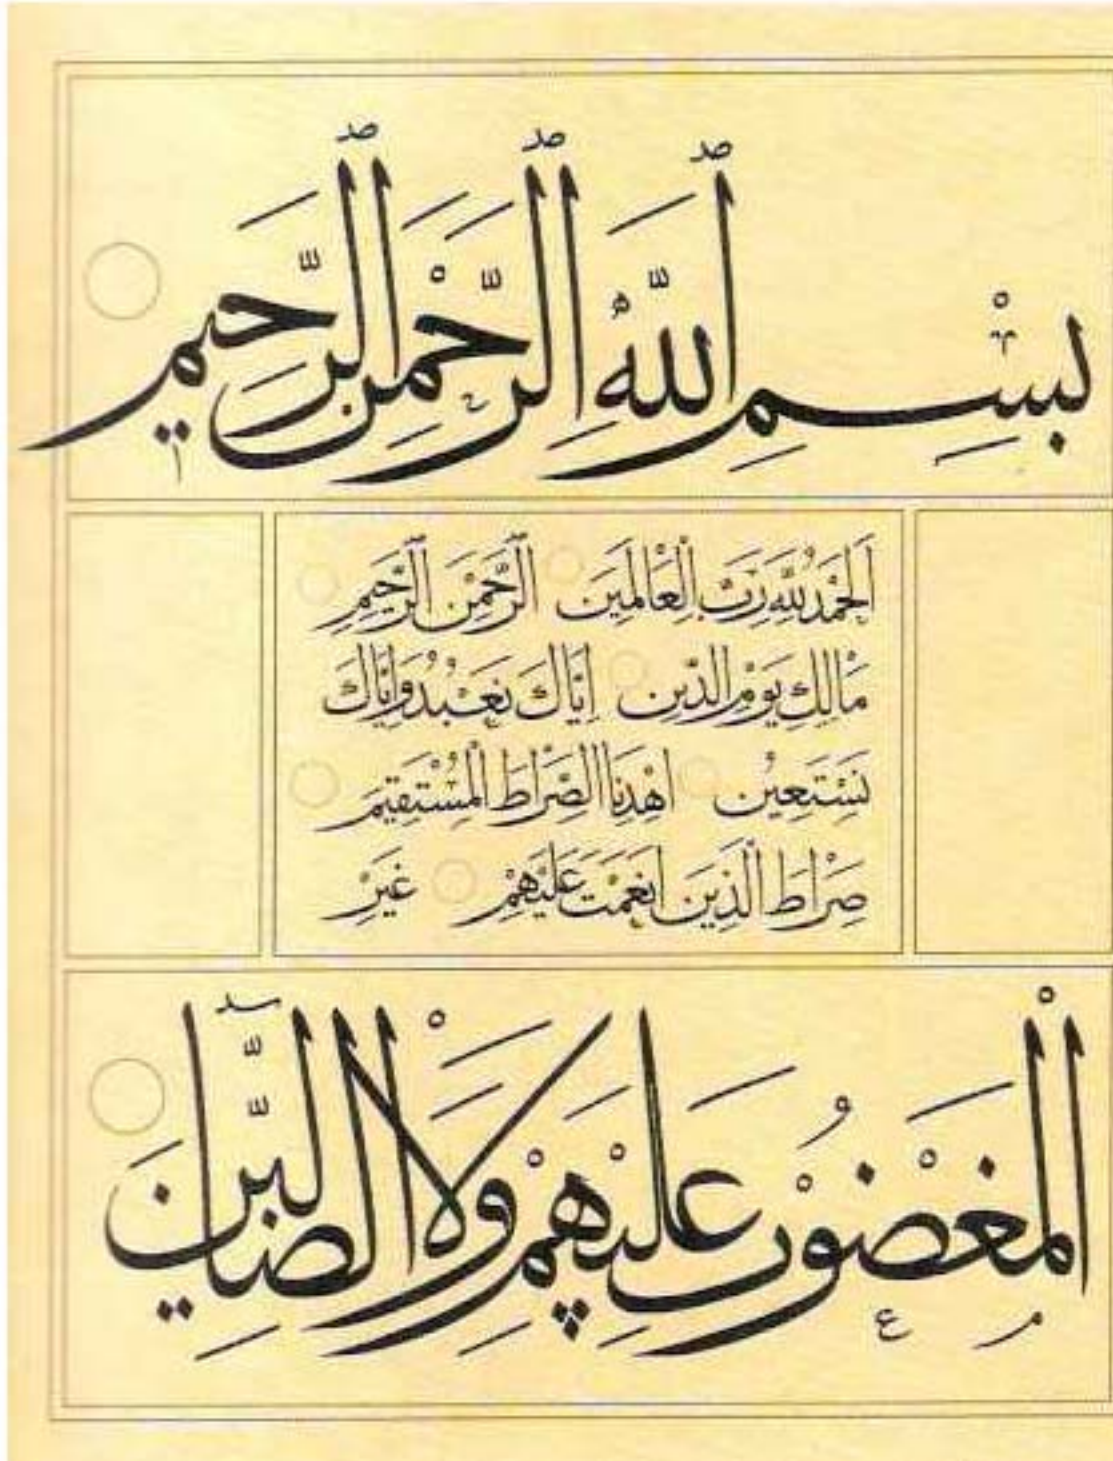 بِسْمِ ٱللَّهِ ٱلرَّحْمٰنِ ٱلرَّحِيمِ
اَلْحَمْدُ لِلَّهِ رَبِّ الْعَالَمِينَ الرَّحْمٰنِ الرَّحِيمِ
مَالِكِ يَوْمِ الدِّينِ اِيَّاكَ نَعْبُدُ وَاِيَّاكَ
نَسْتَعِينُ اهْدِنَا الصِّرَاطَ الْمُسْتَقِيمَ
صِرَاطَ الَّذِينَ اَنْعَمْتَ عَلَيْهِمْ غَيْرِ
الْمَغْضُوبِ عَلَيْهِمْ وَلَا الضَّالِّينَ